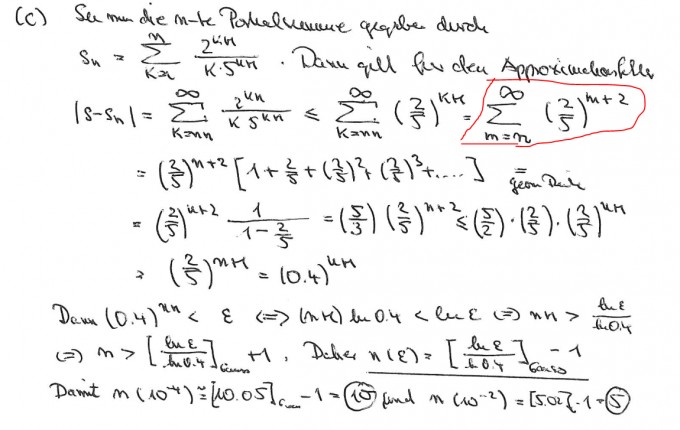 (c) Sei nun die n-te Partialsumme gegeben durch
S_n = Σ_{K=1}^{n} 2^{K+1} / (K·5^{K+1}) . Dann gilt für den Approximationsfehler
|S-S_n| = Σ_{K=n+1}^{∞} 2^{K+1} / (K 5^{K+1}) ≤ Σ_{K=n+1}^{∞} (2/5)^{K+1} = Σ_{m=n}^{∞} (2/5)^{m+2}
= (2/5)^{n+2} [1 + 2/5 + (2/5)^2 + (2/5)^3 + ....] = geom Reihe
= (2/5)^{n+2} 1/(1 - 2/5) = (5/3) (2/5)^{n+2} ≤ (5/2) · (2/5) · (2/5)^{n+1}
= (2/5)^{n+1} = (0.4)^{n+1}
Dann (0.4)^{n+1} < ε ⟺ (n+1) ln 0.4 < ln ε ⟺ n+1 > ln ε / ln 0.4
⟺ n > [ln ε / ln 0.4]_{Gauss} + 1 . Daher n(ε) = [ln ε / ln 0.4]_{Gauss} - 1
Damit n(10^{-4}) ≅ [10.05]_{Gauss} - 1 = 10 und n(10^{-2}) = [5.02] - 1 = 5